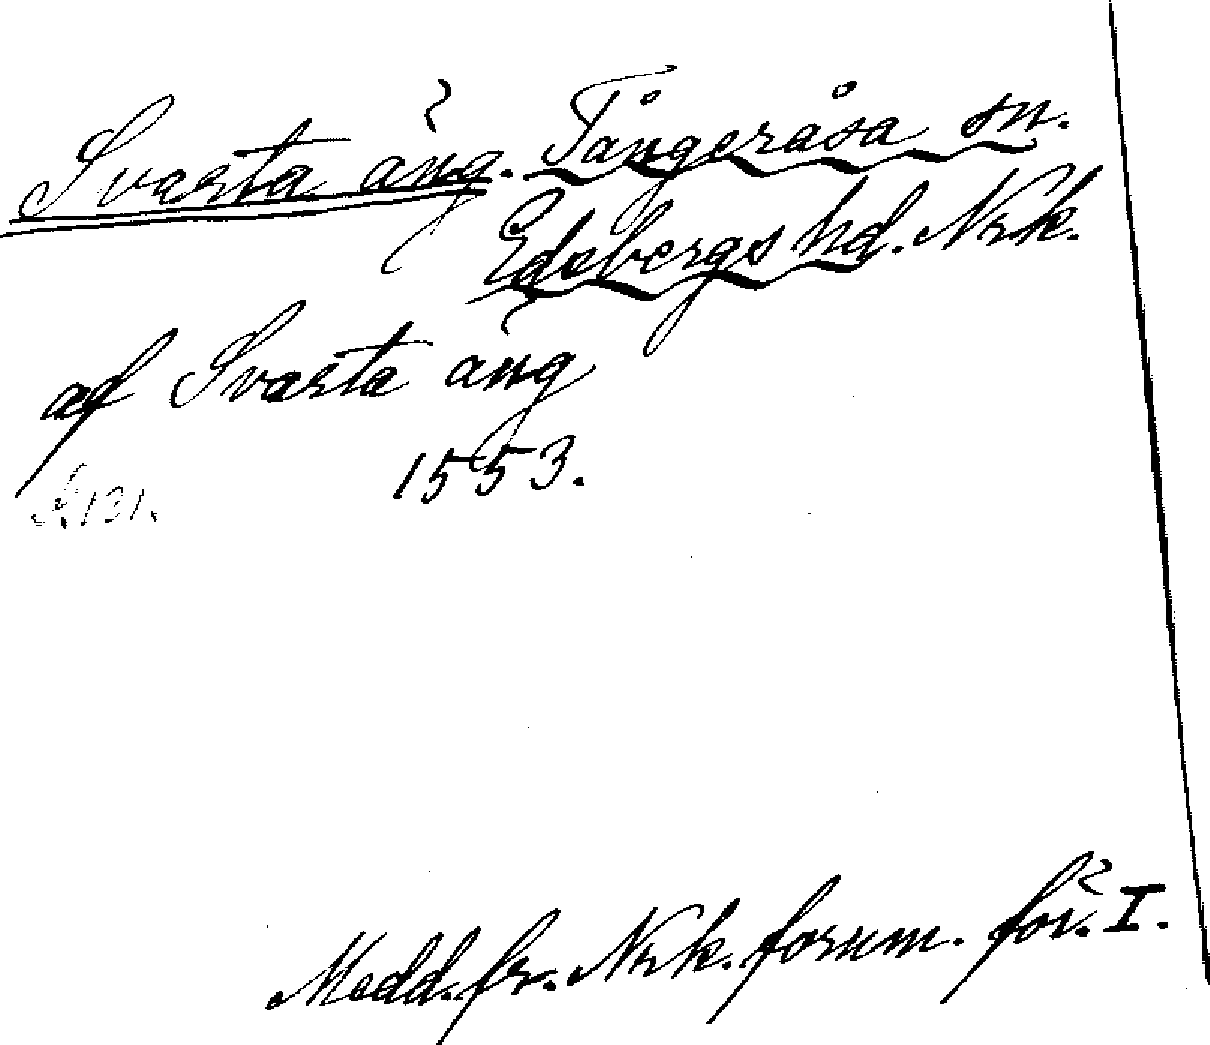 Svarta äng. Tångeråsa sn.
Edsbergs hd. Nrk.
af Svarta äng
1553.
S. 131.
Medd. fr. Nrk. fornm. för. I.